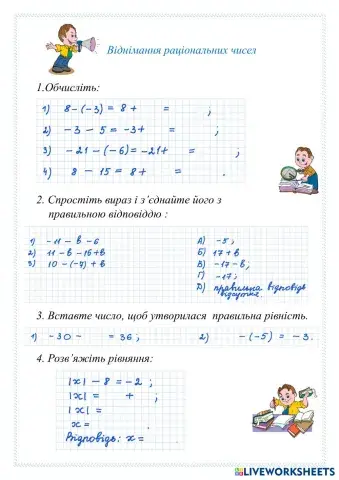 Віднімання раціональних чисел
1.Обчисліть:
1) 8-(-3) = 8 + = ;
2) -3 - 5 = -3+ = ;
3) -21-(-6)= -21+ = ;
4) 8 - 15 = 8+ = .
2. Спростіть вираз і з´єднайте його з
правильною відповіддю :
1) -11 - в - 6
2) 11 - в - 16+в
3) 10 - (-7) + в
А) -5;
Б) 17 + в
В) -17 - в;
Г) -17;
Д) правильна відповідь
відсутня.
3. Вставте число, щоб утворилася правильна рівність.
1) -30 - = 36 ; 2) - (-5) = -3.
4. Розв´яжіть рівняння:
|x| - 8 = -2 ;
|x| = + ;
|x| =
x = .
Відповідь: x =
LIVEWORKSHEETS